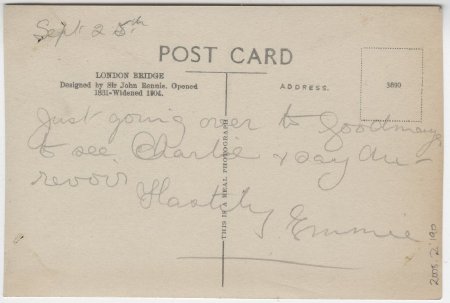 Sept 25th
POST CARD
LONDON BRIDGE
Designed by Sir John Rennie. Opened
1831-Widened 1904.
ADDRESS.
3890
Just going over to Goodmays
to see Charlie & say Au-
revoir
Hastily Emmie
THIS IS A REAL PHOTOGRAPH